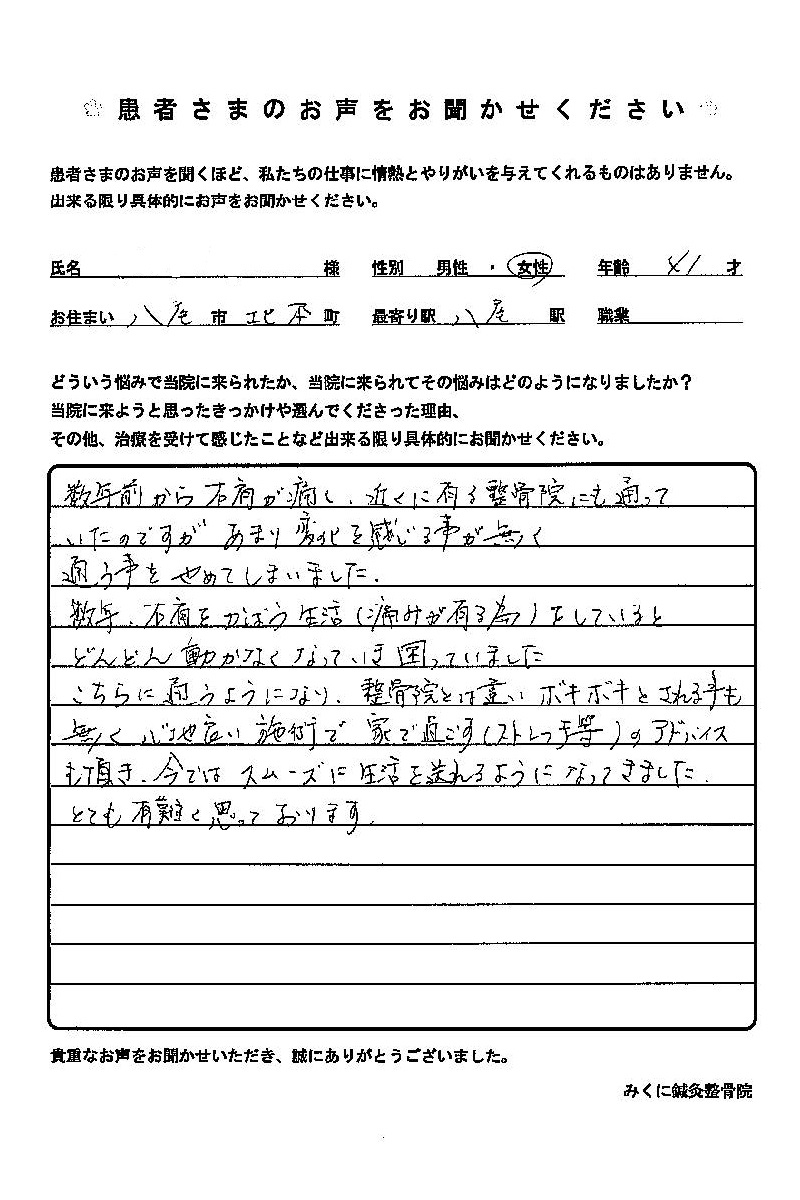 患者さまのお声をお聞かせください
患者さまのお声を聞くほど、私たちの仕事に情熱とやりがいを与えてくれるものはありません。
出来る限り具体的にお声をお聞かせください。
氏名 様 性別 男性 ・ 女性 年齢 41 才
お住まい 八尾 市 本 町 最寄り駅 八尾 駅 職業
どういう悩みで当院に来られたか、当院に来られてその悩みはどのようになりましたか?
当院に来ようと思ったきっかけや選んでくださった理由、
その他、治療を受けて感じたことなど出来る限り具体的にお聞かせください。
数年前から右肩が痛く、近くに有る整骨院にも通って
いたのですが あまり変化を感じる事が無く
通う事をやめてしまいました.
数年、右肩をかばう生活(痛みが有る為)をしていると
どんどん動かなくなっていき困っていました
こちらに通うようになり、整骨院とは違いボキボキとされる事も
無く心地良い施術で家で過ごす(ストレッチ等)のアドバイス
も頂き、今ではスムーズに生活を送れるようになってきました.
とても有難く思っております.
貴重なお声をお聞かせいただき、誠にありがとうございました。
みくに鍼灸整骨院